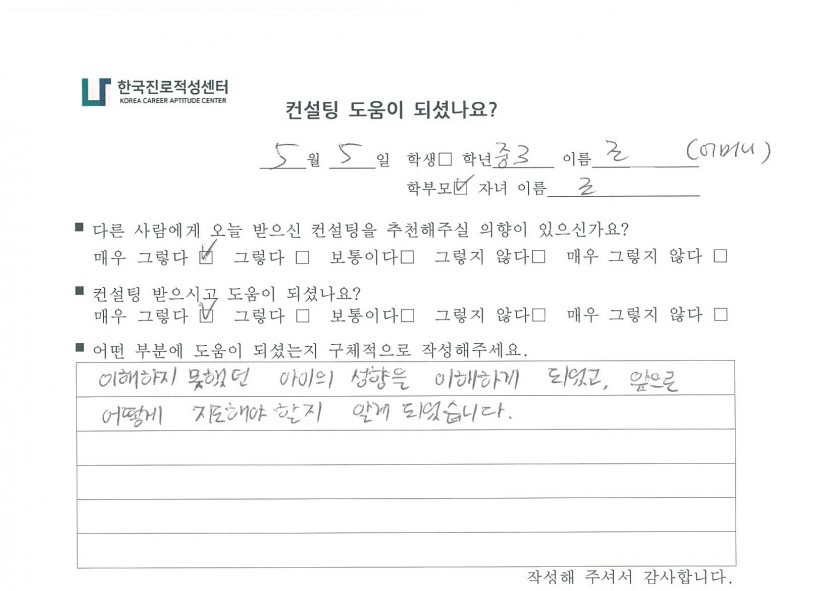 한국진로적성센터
KOREA CAREER APTITUDE CENTER
컨설팅 도움이 되셨나요?
5월 5일 학생□ 학년 중3 이름 (어머니)
학부모☑ 자녀 이름
■ 다른 사람에게 오늘 받으신 컨설팅을 추천해주실 의향이 있으신가요?
매우 그렇다 ☑ 그렇다 □ 보통이다□ 그렇지 않다□ 매우 그렇지 않다 □
■ 컨설팅 받으시고 도움이 되셨나요?
매우 그렇다 ☑ 그렇다 □ 보통이다□ 그렇지 않다□ 매우 그렇지 않다 □
■ 어떤 부분에 도움이 되셨는지 구체적으로 작성해주세요.
이해하지 못했던 아이의 성향을 이해하게 되었고, 앞으로
어떻게 지도해야 할지 알게 되었습니다.
작성해 주셔서 감사합니다.